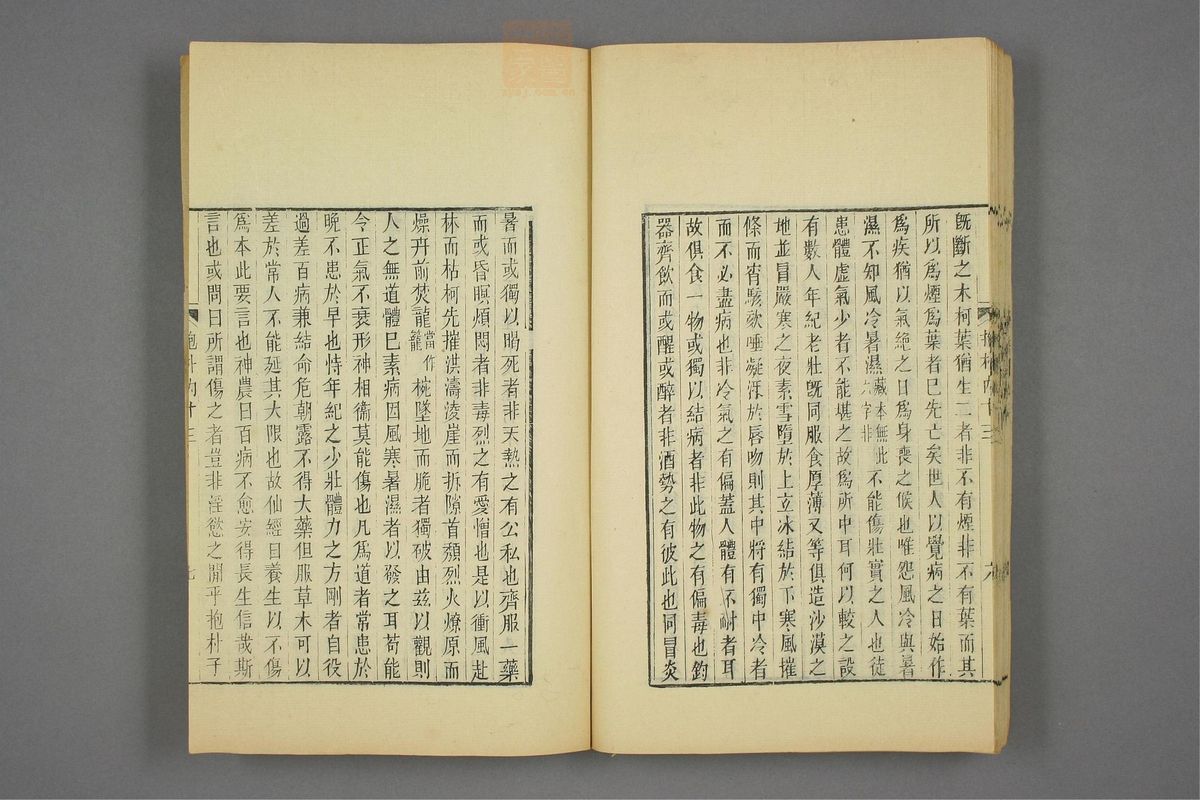 旣斷之木柯葉猶生二者非不有煙非不有葉而其
所以爲煙爲葉者巳先亡矣世人以覺病之日始作
爲疾猶以氣絶之日爲身喪之候也唯怨風冷與暑
濕不知風冷暑濕藏本無此六字非不能傷壯實之人也徒
患體虛氣少者不能堪之故爲所中耳何以較之設
有數人年紀老壯旣同服食厚薄又等俱造沙漠之
地並冒嚴寒之夜素雪墮於上立冰結於下寒風摧
條而宵駭欬唾凝沍於唇吻則其中將有獨中冷者
而不必盡病也非冷氣之有偏蓋人體有不耐者耳
故俱食一物或獨以結病者非此物之有偏毒也鈞
器齊飲而或醒或醉者非酒勢之有彼此也同冒炎
暑而或獨以暍死者非天熱之有公私也齊服一藥
而或昏瞑煩悶者非毒烈之有愛憎也是以衝風赴
林而枯柯先摧洪濤凌崖而拆隙首頽烈火燎原而
燥卉前焚龍當作籠椀墜地而脆者獨破由茲以觀則
人之無道體巳素病因風寒暑濕者以發之耳苟能
令正氣不衰形神相衞莫能傷也凡爲道者常患於
晚不患於早也恃年紀之少壯體力之方剛者自役
過差百病兼結命危朝露不得大藥但服草木可以
差於常人不能延其大限也故仙經曰養生以不傷
爲本此要言也神農曰百病不愈安得長生信哉斯
言也或問曰所謂傷之者豈非淫慾之閒乎抱朴子
抱朴內十三
七